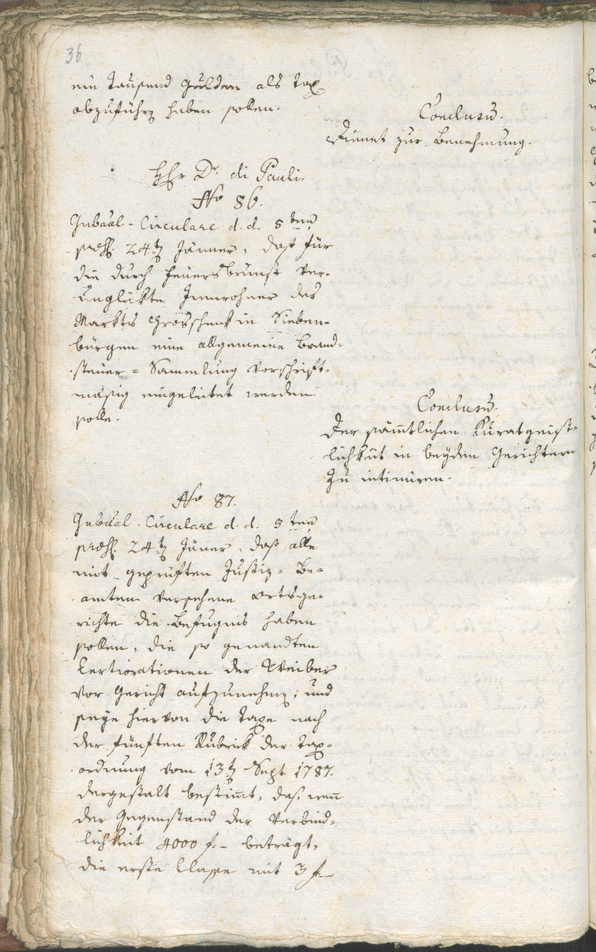 36
ein tausend Gulden als Tax
abzuführen haben sollen.
Conclusum.
Dienet zur Benehmung.
Hr Dr. di Pauli
No 86.
Gubäal-Circulare d. d. 5ten
praes. 24ten Jänner, daß für
die durch Feuersbrunst ver-
unglükte Innwohner des
Markts Groß schenk in Sieben-
bürgen eine allgemeine Brand-
steuer-Sammlung vorschrift-
mäsig eingeleitet werden
solle.
Conclusum.
Der sämtlichen Kuratgeist-
lichkeit in beyden Gerichtern
zu intimiren.
No 87.
Gubäal-Circulare d. d. 5ten
praes. 24ten Jäner, daß alle
mit geprüften Justiz-Be-
amten versehene Ortsge-
richte die Befugnis haben
sollen, die so genandten
Certiorationen der Weiber
vor Gericht aufzunehmen; und
seye hiervon die Taxe nach
der fünften Rubrick der Tax-
ordnung vom 13ten Sept 1787.
dergestalt bestimt, das, wen
der Gegenstand der Verbind-
lichkeit 4000 f.- beträgt,
die erste Classe mit 3 f.-